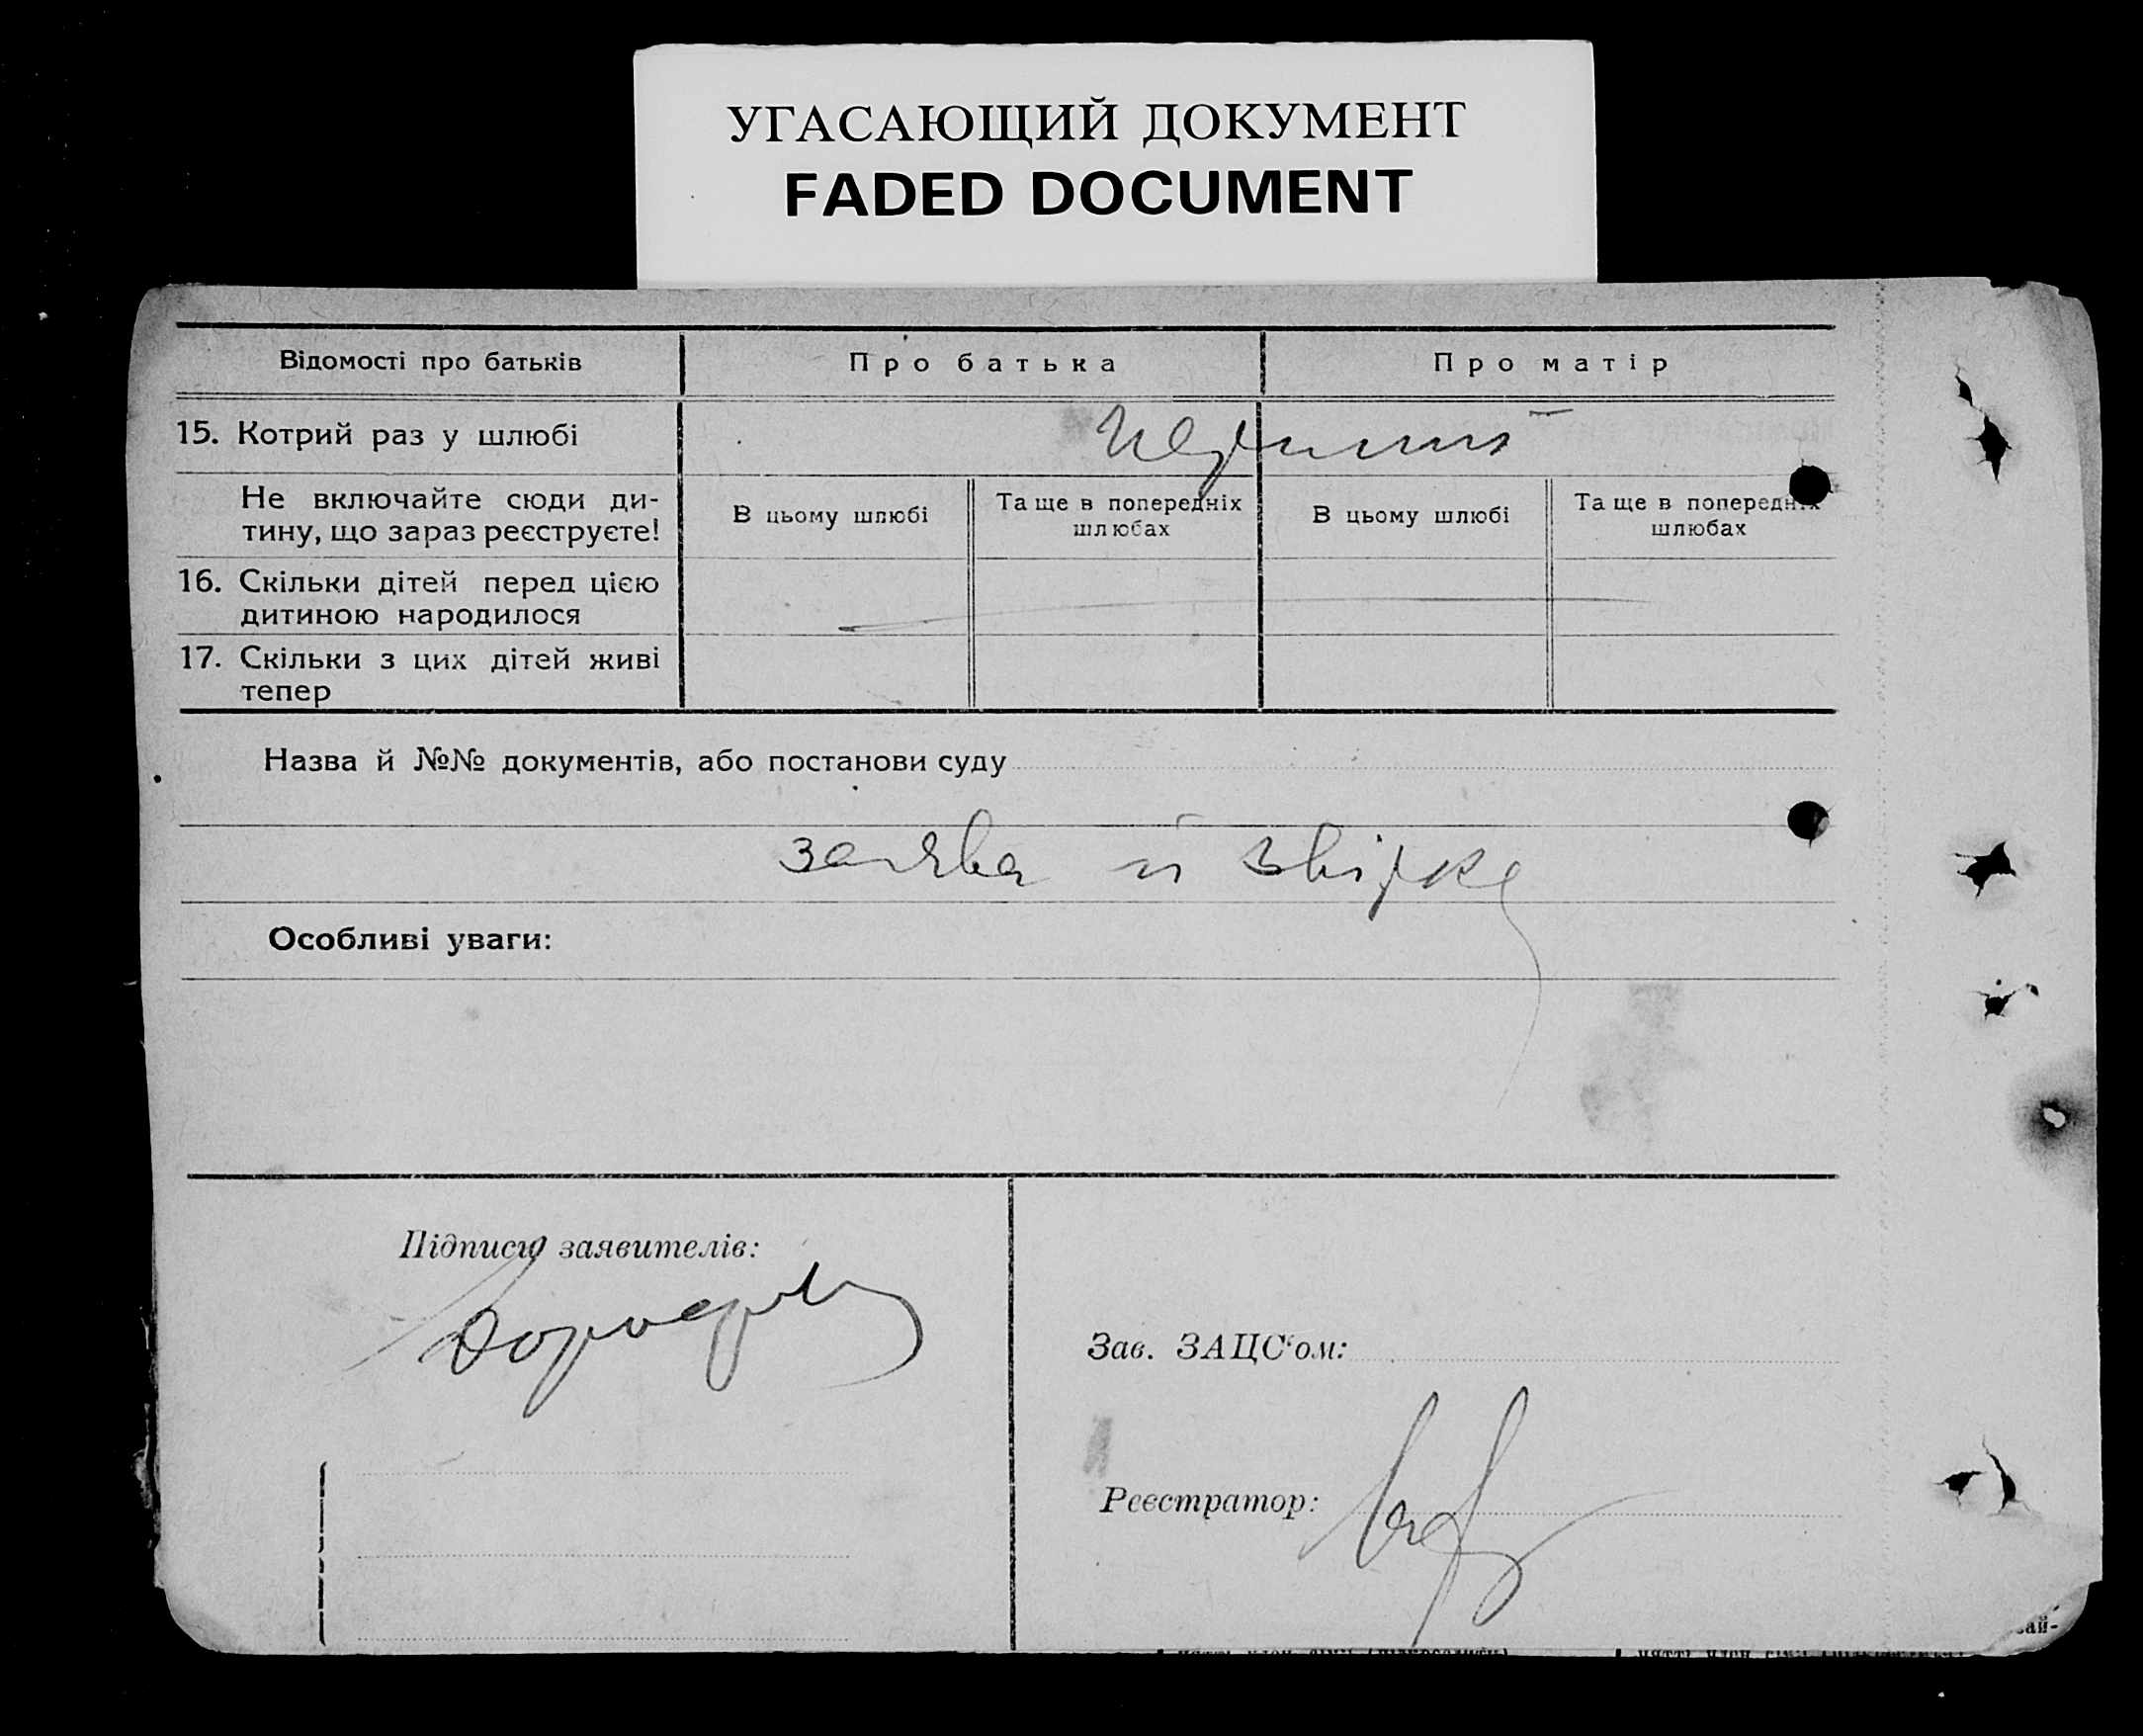 УГАСАЮЩИЙ ДОКУМЕНТ
FADED DOCUMENT
Відомості про батьків
Про батька
Про матір
15. Котрий раз у шлюбі
Перший
Не включайте сюди ди-
тину, що зараз реєструєте!
В цьому шлюбі
Та ще в попередніх
шлюбах
В цьому шлюбі
Та ще в попередніх
шлюбах
16. Скільки дітей перед цією
дитиною народилося
17. Скільки з цих дітей живі
тепер
Назва й №№ документів, або постанови суду
заява й звірка
Особливі уваги:
Підписи заявителів:
Зав. ЗАЦС‘ом:
Реєстратор: